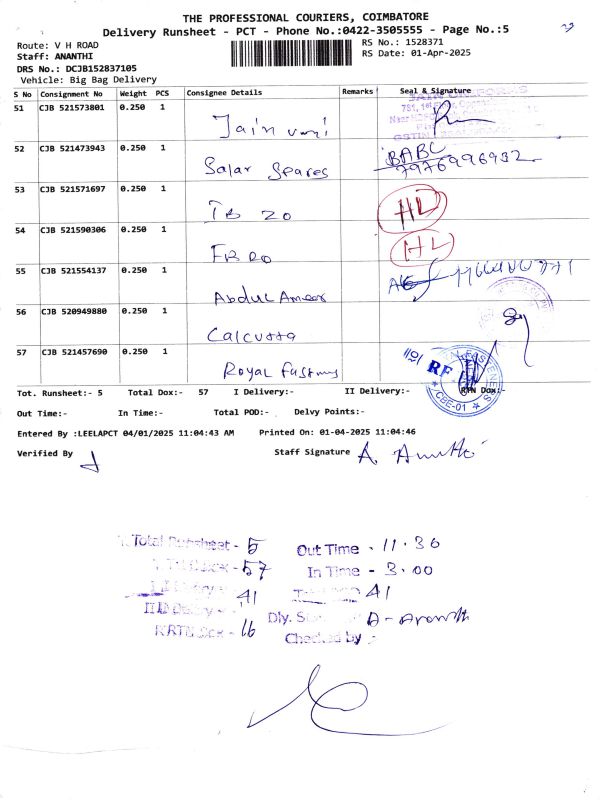 THE PROFESSIONAL COURIERS, COIMBATORE
Delivery Runsheet - PCT - Phone No.:0422-3505555 - Page No.:5
Route: V H ROAD
RS No.: 1528371
Staff: ANANTHI
RS Date: 01-Apr-2025
DRS No.: DCJB152837105
Vehicle: Big Bag Delivery
S No Consignment No Weight PCS Consignee Details Remarks Seal & Signature
51 CJB 521573801 0.250 1
Jain
52 CJB 521473943 0.250 1
Salar Spares BABU 7976996932
53 CJB 521571697 0.250 1
20
54 CJB 521590306 0.250 1
55 CJB 521554137 0.250 1
Abdul Ameer
56 CJB 520949880 0.250 1
Calcutta
57 CJB 521457690 0.250 1
Royal
CBE-01
Tot. Runsheet:- 5 Total Dox:- 57 I Delivery:- II Delivery:- RTN Dox:-
Out Time:- In Time:- Total POD:- Delvy Points:-
Entered By :LEELAPCT 04/01/2025 11:04:43 AM Printed On: 01-04-2025 11:04:46
Verified By Staff Signature
Total Runsheet - 5 Out Time - 11.30
57 In Time - 3.00
41 41
16
Checked by